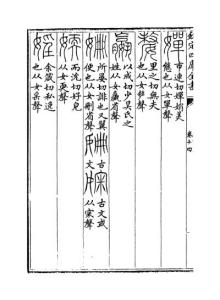 欽定四庫全書
卷十四
嬋 市連切嬋娟美
態也从女單聲
嫠 里之切無夫
也从女𠩺聲
嬴 以成切少昊氏之
姓从女羸省聲
姍 所晏切誹也又翼
便也从女刪省聲
古文
古文或
从 聲
媆 而沇切好皃
也从女耎聲
婬 余箴切私逸
也从女㸒聲